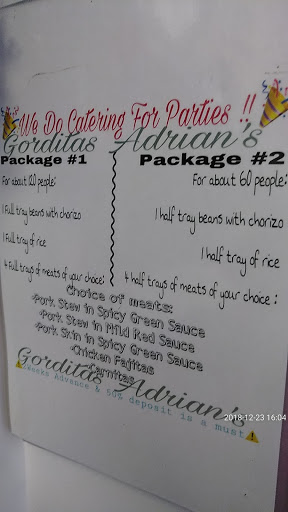 We Do Catering For Parties !!
Gorditas Adrian's
Package #1
For about 120 people:
1 Full tray beans with chorizo
1 Full tray of rice
4 Full trays of meats of your choice:
Package #2
For about 60 people:
1 half tray beans with chorizo
1 half tray of rice
4 half trays of meats of your choice :
Choice of meats:
•Pork Stew in Spicy Green Sauce
•Pork Stew in Mild Red Sauce
•Pork Skin in Spicy Green Sauce
•Chicken Fajitas
•Carnitas
Gorditas Adrian's
Weeks Advance & 50% deposit is a must
2018-12-23 16:04